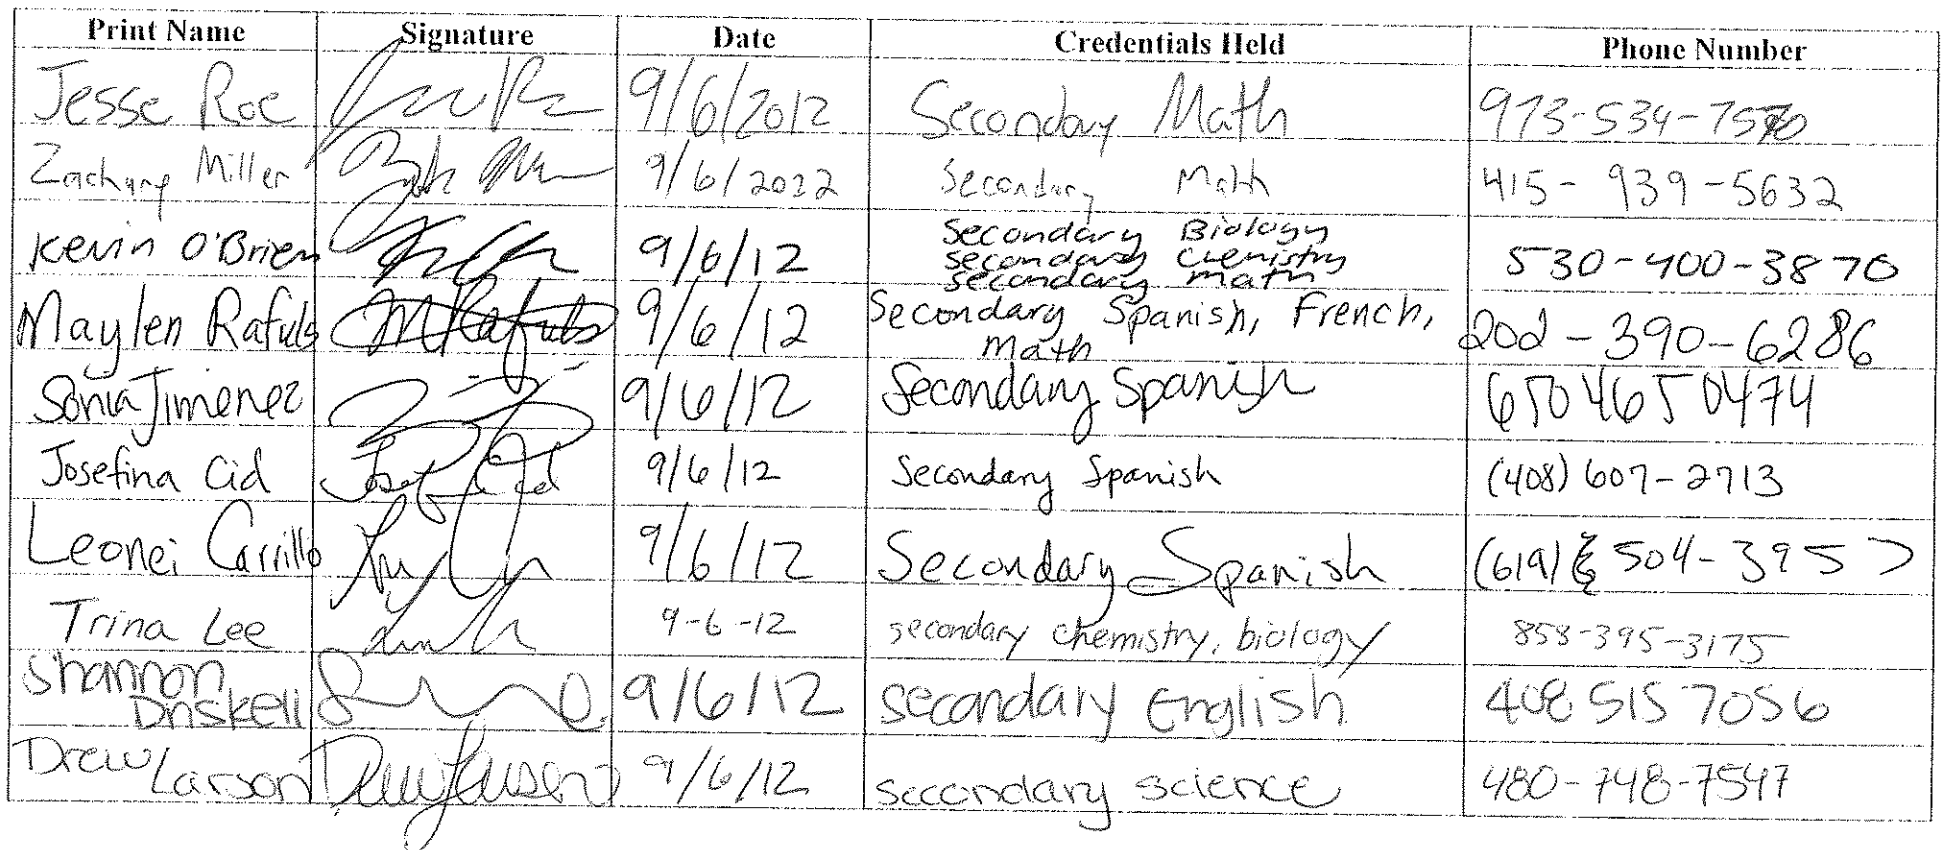 Print Name Signature Date Credentials Held Phone Number
Jesse Roe 9/6/2012 Secondary Math 973-534-7570
Zachary Miller 9/6/2012 Secondary Math 415-939-5632
Kevin O'Brien 9/6/12 Secondary Biology
secondary Chemistry 530-400-3870
secondary math
Maylen Rafuls MRafuls 9/6/12 Secondary Spanish, French, 202-390-6286
Math
Sonia Jimenez 9/6/12 Secondary Spanish 6504650474
Josefina Cid Josefina Cid 9/6/12 Secondary Spanish (408) 607-2713
Leonei Carrillo 9/6/12 Secondary Spanish (619) 504-3957
Trina Lee 9-6-12 secondary chemistry, biology 858-395-3175
Shannon
Driskell 9/6/12 secondary English 408 515 7056
Drew
Larson Drew Larson 9/6/12 secondary science 480-748-7547